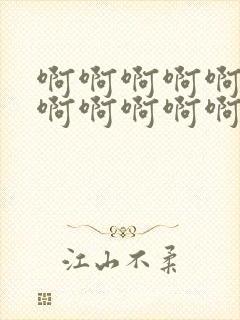 啊啊啊啊啊
啊啊啊啊啊
江山不柔